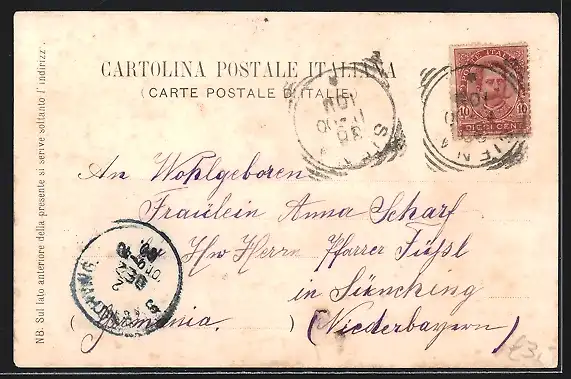 CARTOLINA POSTALE ITALIANA
(CARTE POSTALE D'ITALIE)
POSTE ITALIANE
10 10
DIECI CENT
SIENA
An Wohlgeboren
Fräulein Anna Scharf
Hw Herrn Pfarrer Füßl
in Sünching
(Germania.) (Niederbayern)
2 DEZ
NB. Sul lato anteriore della presente si scrive soltanto l'indirizzo.